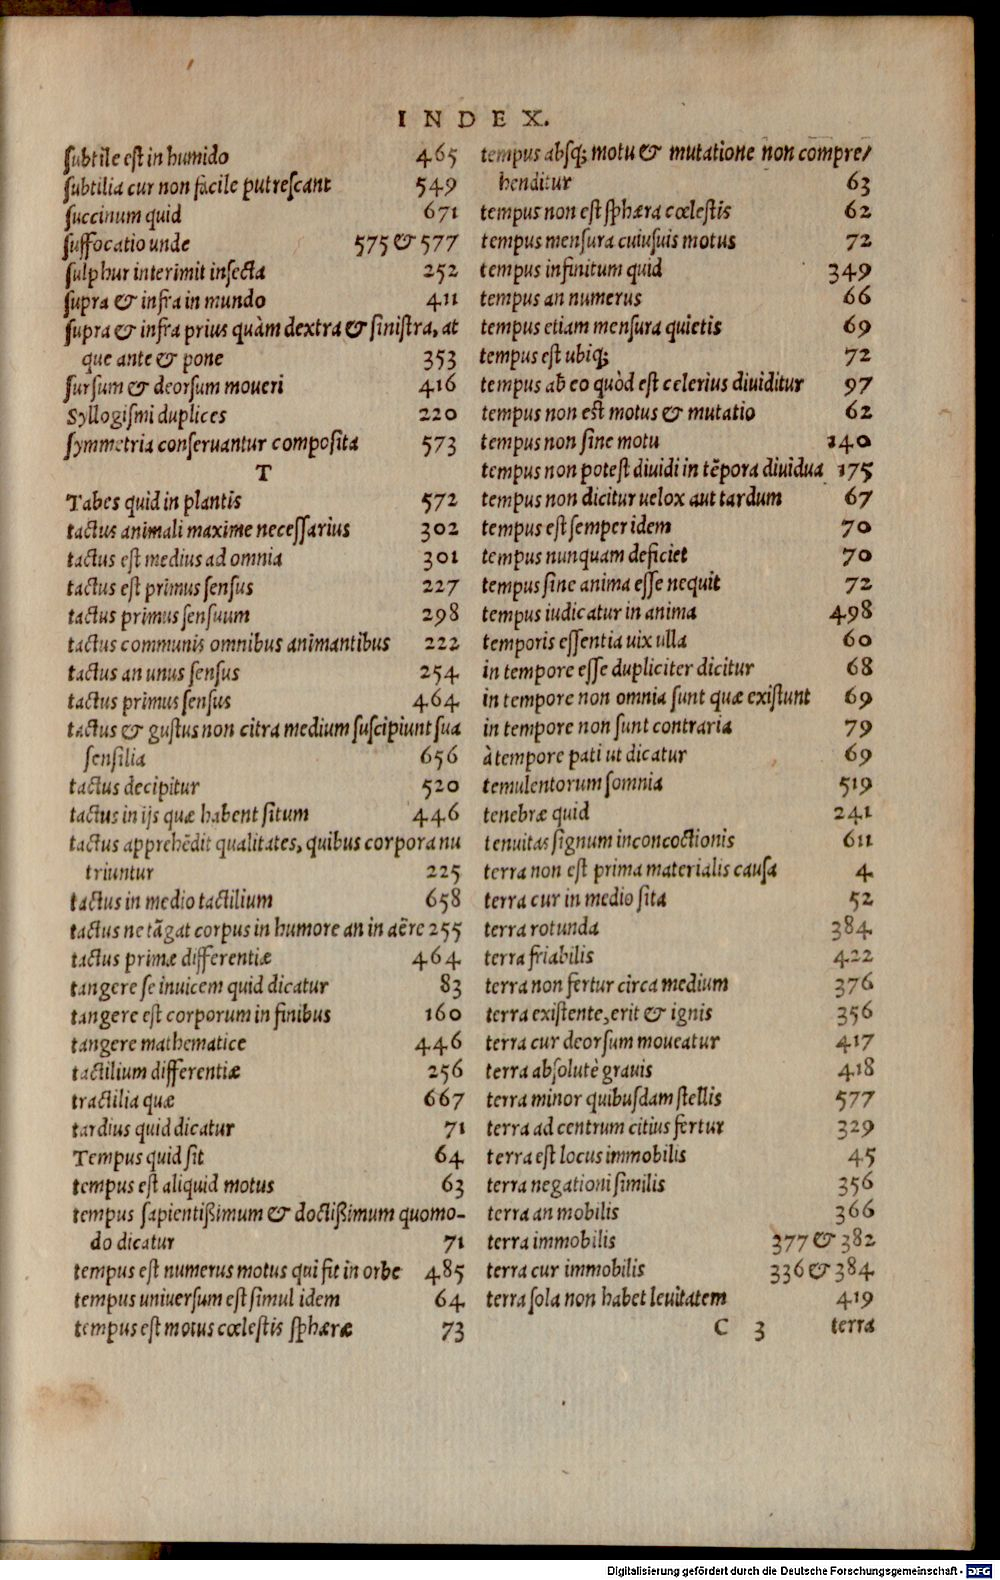 INDEX.
ſubtile eſt in humido 465
ſubtilia cur non facile putreſcant 549
ſuccinum quid 671
ſuffocatio unde 575 & 577
ſulphur interimit inſecta 252
ſupra & infra in mundo 411
ſupra & infra prius quàm dextra & ſiniſtra, at
que ante & pone 353
ſurſum & deorſum moueri 416
Syllogiſmi duplices 220
ſymmetria conſeruantur compoſita 573
T
Tabes quid in plantis 572
tactus animali maxime neceſſarius 302
tactus eſt medius ad omnia 301
tactus eſt primus ſenſus 227
tactus primus ſenſuum 298
tactus communis omnibus animantibus 222
tactus an unus ſenſus 254
tactus primus ſenſus 464
tactus & guſtus non citra medium ſuſcipiunt ſua
ſenſilia 656
tactus decipitur 520
tactus in ijs quæ habent ſitum 446
tactus apprehẽdit qualitates, quibus corpora nu
triuntur 225
tactus in medio tactilium 658
tactus ne tãgat corpus in humore an in aëre 255
tactus primæ differentiæ 464
tangere ſe inuicem quid dicatur 83
tangere eſt corporum in finibus 160
tangere mathematice 446
tactilium differentiæ 256
tractilia quæ 667
tardius quid dicatur 71
Tempus quid ſit 64
tempus eſt aliquid motus 63
tempus ſapientißimum & doctißimum quomo-
do dicatur 71
tempus eſt numerus motus qui fit in orbe 485
tempus uniuerſum eſt ſimul idem 64
tempus eſt motus cœleſtis ſphæræ 73
tempus abſq; motu & mutatione non compre/
henditur 63
tempus non eſt ſphæra cœleſtis 62
tempus menſura cuiuſuis motus 72
tempus infinitum quid 349
tempus an numerus 66
tempus etiam menſura quietis 69
tempus eſt ubiq; 72
tempus ab eo quòd eſt celerius diuiditur 97
tempus non eſt motus & mutatio 62
tempus non ſine motu 140
tempus non poteſt diuidi in tẽpora diuidua 175
tempus non dicitur uelox aut tardum 67
tempus eſt ſemper idem 70
tempus nunquam deficiet 70
tempus ſine anima eſſe nequit 72
tempus iudicatur in anima 498
temporis eſſentia uix ulla 60
in tempore eſſe dupliciter dicitur 68
in tempore non omnia ſunt quæ exiſtunt 69
in tempore non ſunt contraria 79
à tempore pati ut dicatur 69
temulentorum ſomnia 519
tenebræ quid 241
tenuitas ſignum inconcoctionis 611
terra non eſt prima materialis cauſa 4
terra cur in medio ſita 52
terra rotunda 384
terra friabilis 422
terra non fertur circa medium 376
terra exiſtente, erit & ignis 356
terra cur deorſum moueatur 417
terra abſolutè grauis 418
terra minor quibuſdam ſtellis 577
terra ad centrum citius fertur 329
terra eſt locus immobilis 45
terra negationi ſimilis 356
terra an mobilis 366
terra immobilis 377 & 382
terra cur immobilis 336 & 384
terra ſola non habet leuitatem 419
C 3 terra
Digitalisierung gefördert durch die Deutsche Forschungsgemeinschaft - DFG